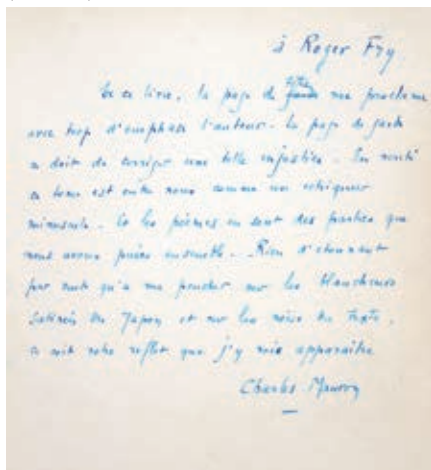 à Roger Fry
De ce livre, la page de titre me proclame
avec trop d'emphase l'auteur. La page de garde
se doit de corriger une telle injustice. En vérité
ce tome est entre nous comme un échiquier
minuscule. Et les poèmes en sont des parties que
nous avons jouées ensemble. Rien d'étonnant
par suite qu'à me pencher sur les blancheurs
satinées du Japon et sur les noirs du texte,
ce soit votre reflet que j'y vois apparaître
Charles Mauron